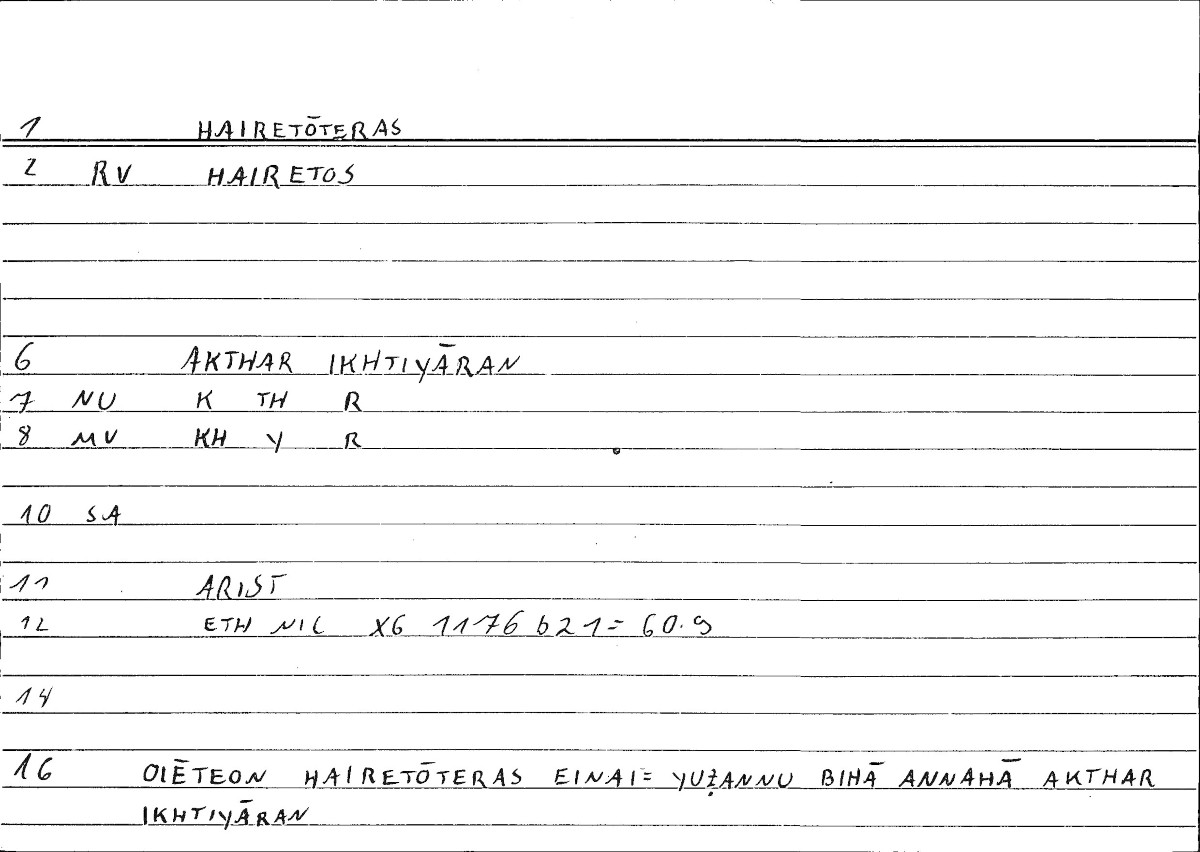 1 HAIRETŌTERAS
2 RV HAIRETOS
6 AKTHAR IKHTIYĀRAN
7 NU K TH R
8 MV KH Y R
10 SA
11 ARIST
12 ETH NIC X6 1176 b21= 60.9
14
16 OIĒTEON HAIRETŌTERAS EINAI= YUẒANNU BIHĀ ANNAHĀ AKTHAR
IKHTIYĀRAN